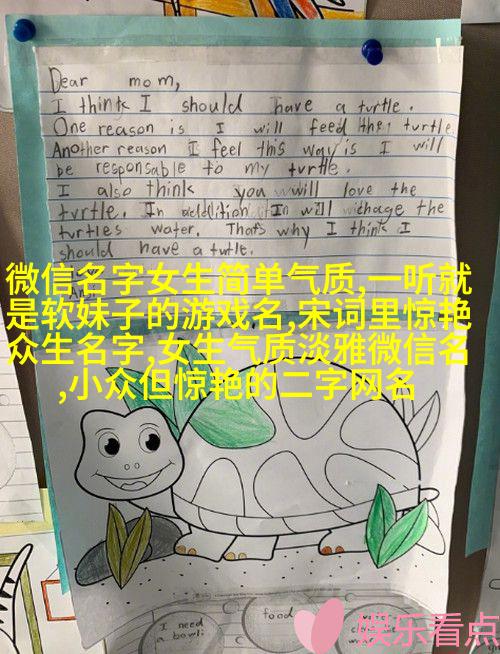 Dear mom,
I think I should have a turtle.
One reason is I will feed the turtle.
Another reason I feel this way is I will
be responsable to my turtle.
I also think you will love the
turtle. In addition I will chage the
turtles water. That's why I think I
should have a turtle.
微信名字女生简单气质,一听就
是软妹子的游戏名,宋词里惊艳
众生名字,女生气质淡雅微信名
,小众但惊艳的二字网名
I need
a bowl
food
娱乐看点